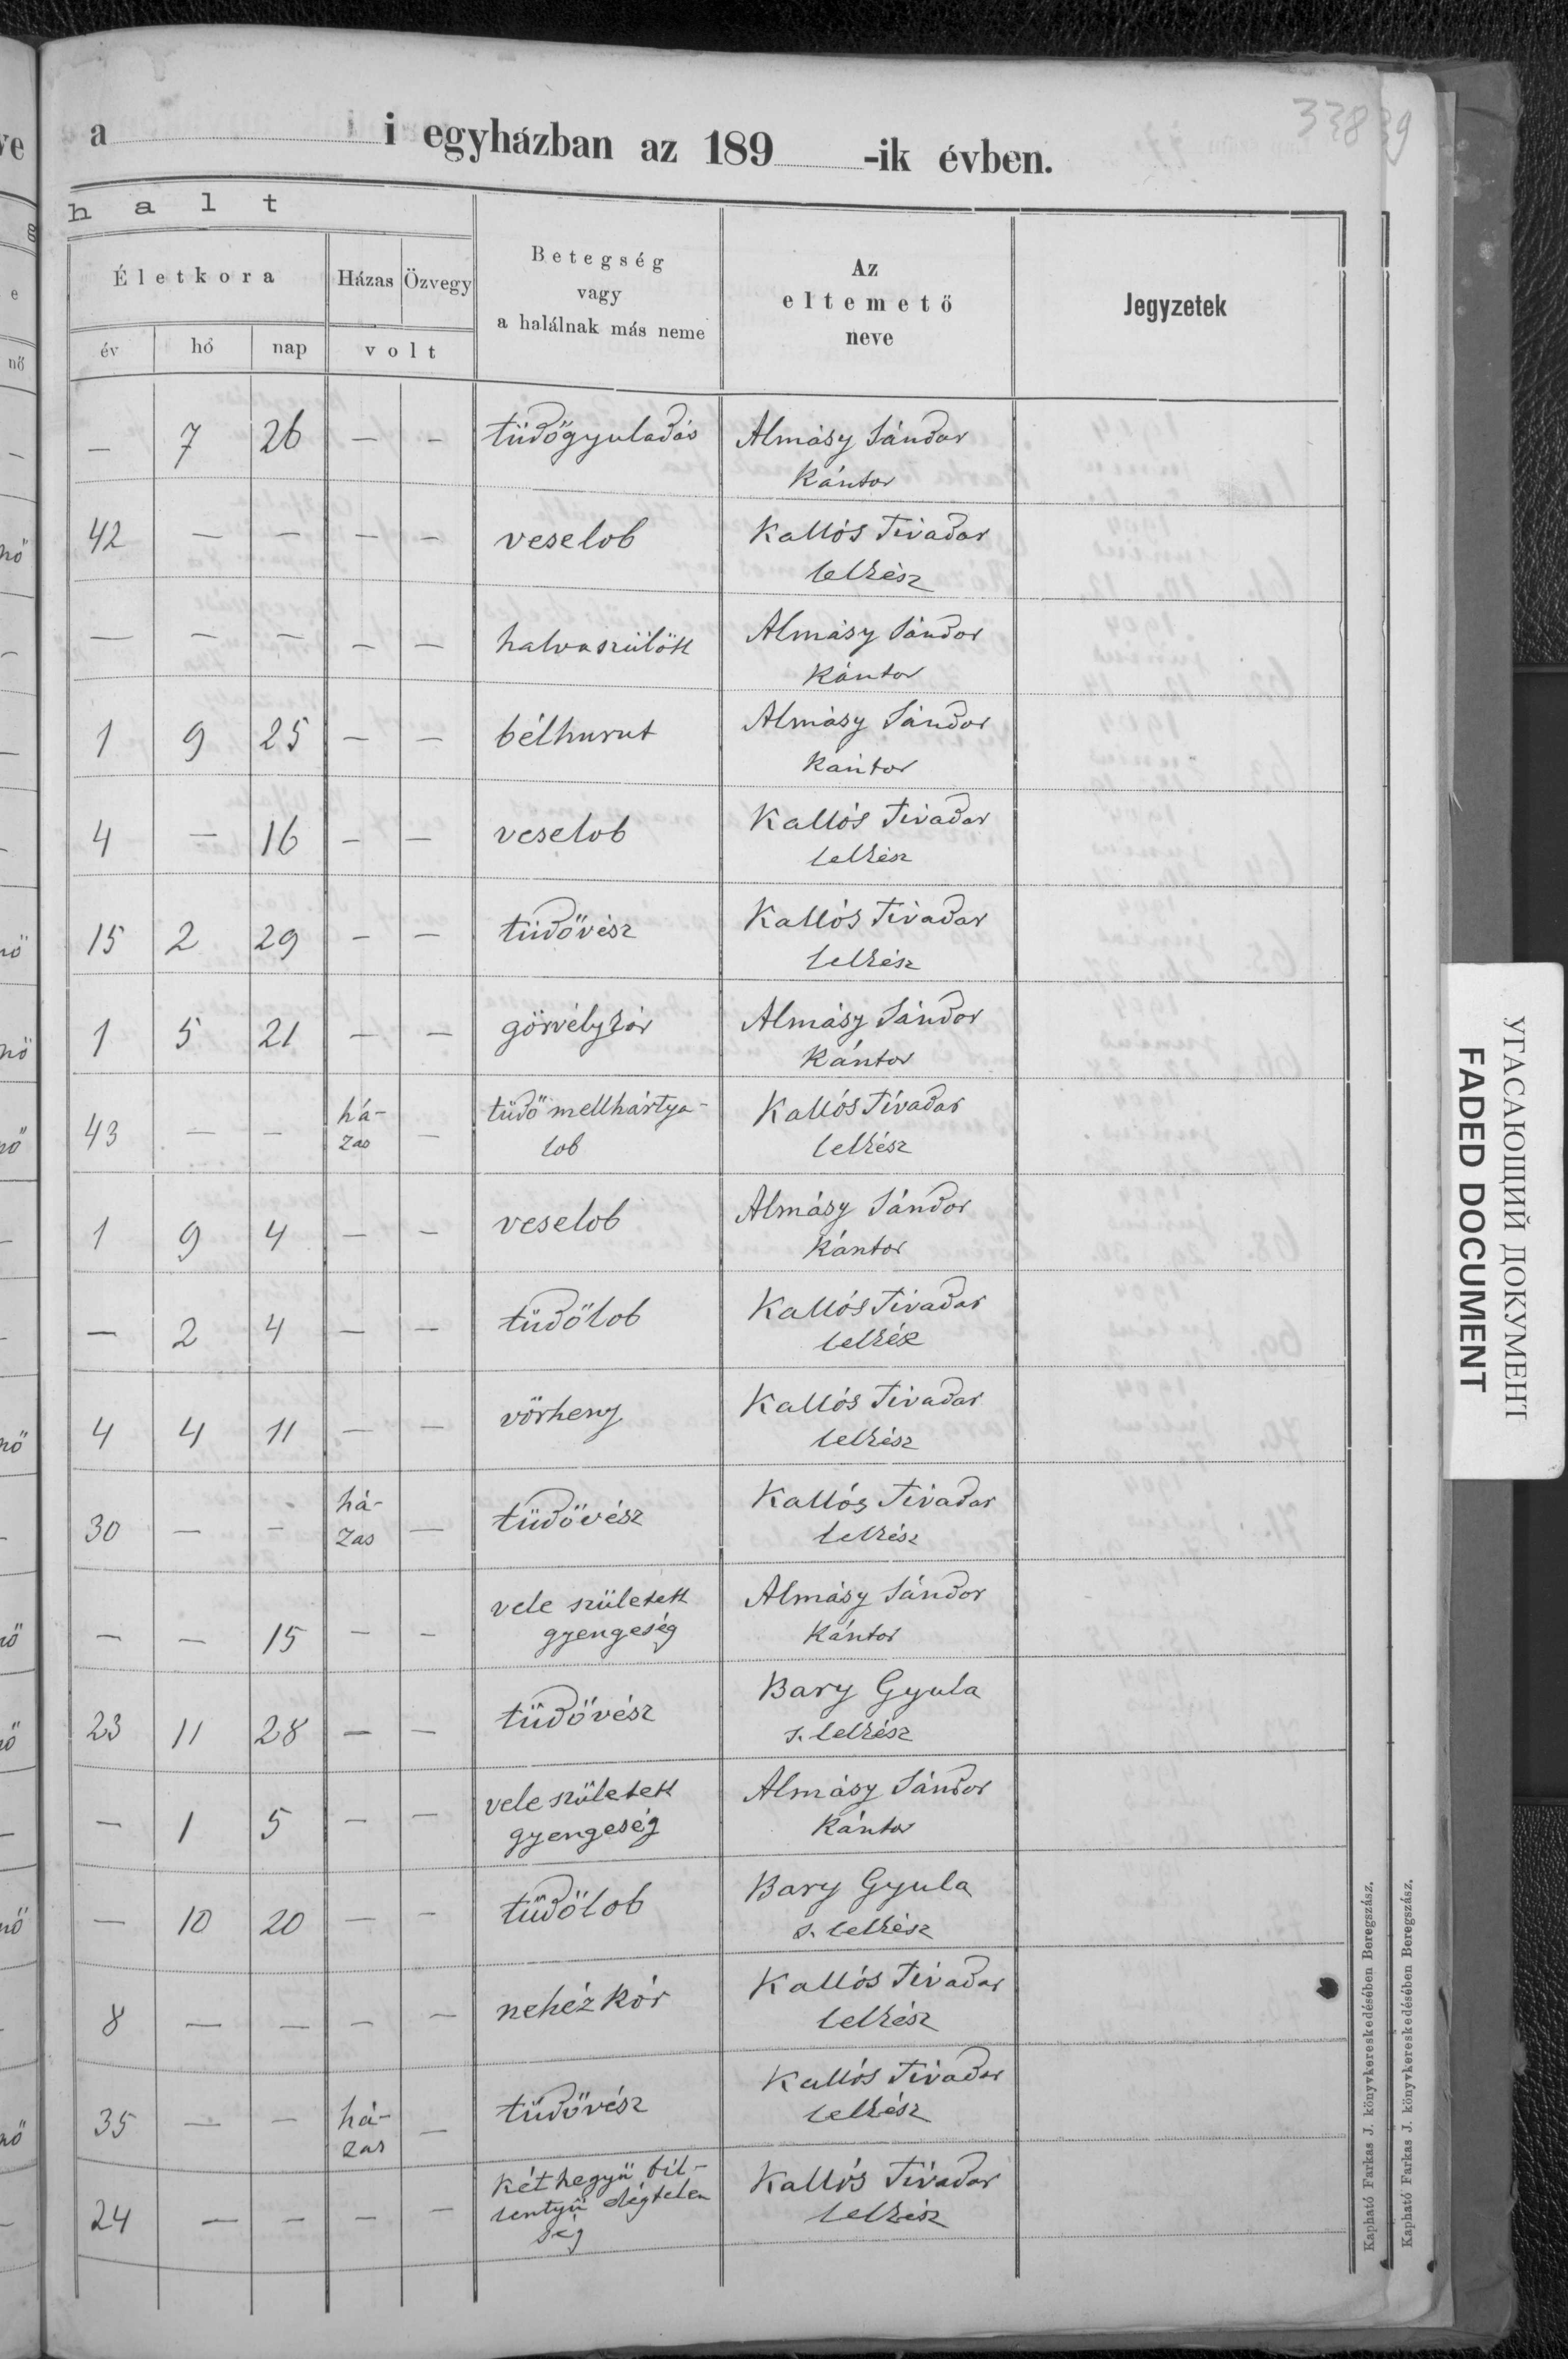 33839
a i egyházban az 189 -ik évben.
halt
Életkora Házas Özvegy Betegség vagy a halálnak más neme Az eltemető neve Jegyzetek
év hó nap volt
— 7 26 — — tüdőgyuladás Almásy Sándor
Kántor
42 — — — — veselob Kallós Tivadar
lelkész
— — — — — halvaszülött Almásy Sándor
Kántor
1 9 25 — — bélhurut Almásy Sándor
Kántor
4 — 16 — — veselob Kallós Tivadar
lelkész
15 2 29 — — tüdővész Kallós Tivadar
lelkész
1 5 21 — — görvélykór Almásy Sándor
Kántor
43 — — há- — tüdő mellhártya- Kallós Tivadar
zas lob lelkész
1 9 4 — — veselob Almásy Sándor
Kántor
— 2 4 — — tüdőlob Kallós Tivadar
lelkész
4 4 11 — — vörheny Kallós Tivadar
lelkész
30 — — há- — tüdővész Kallós Tivadar
zas lelkész
— — 15 — — vele született Almásy Sándor
gyengeség Kántor
23 11 28 — — tüdővész Bary Gyula
s. lelkész
— 1 5 — — vele született Almásy Sándor
gyengeség Kántor
— 10 20 — — tüdőlob Bary Gyula
s. lelkész
8 — — — — nehézkór Kallós Tivadar
lelkész
35 — — há- — tüdővész Kallós Tivadar
zas lelkész
24 — — — — Két hegyü bil- Kallós Tivadar
lentyü elégtelen lelkész
ség
Kapható Farkas J. könyvkereskedésében Beregszász.
Kapható Farkas J. könyvkereskedésében Beregszász.
УГАСАЮЩИЙ ДОКУМЕНТ
FADED DOCUMENT